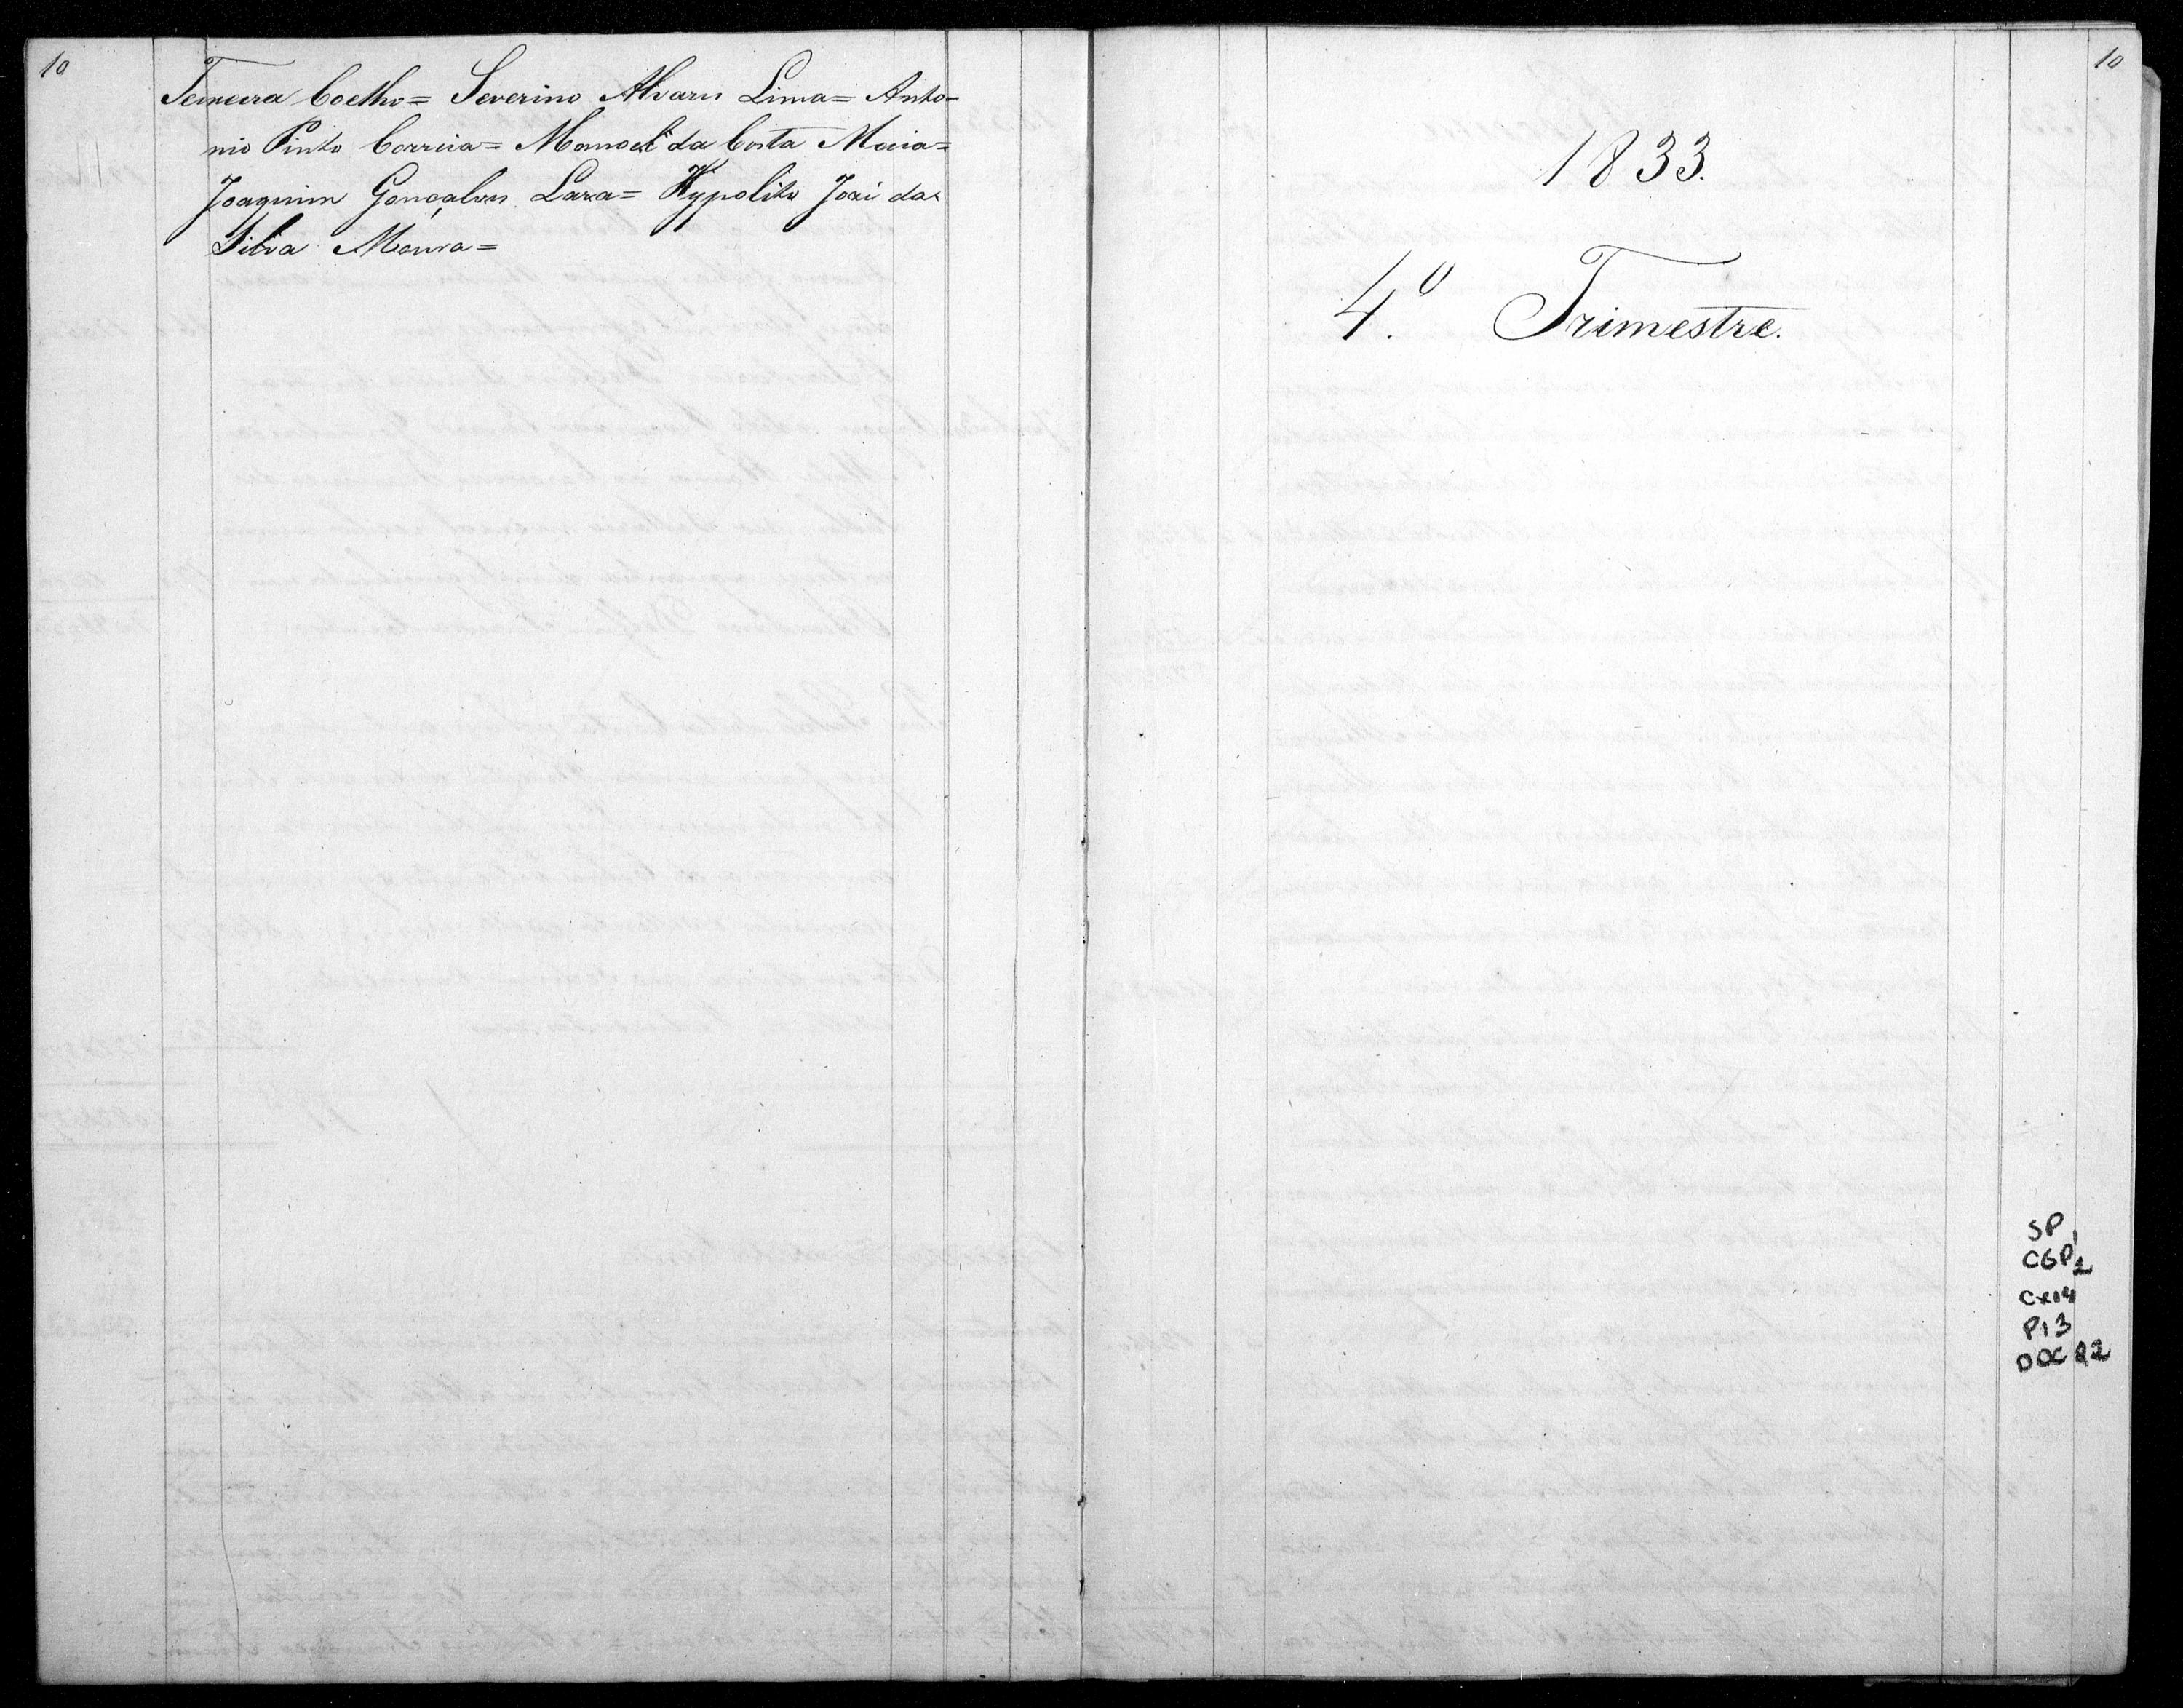 10
Teixeira Coelho= Severino Alvares Lima= Anto-
nio Pinto Correia= Manoel da Costa Maia=
Joaquim Gonçalves Lara= Hypolito José da
Silva Moura=
10
1833.
4.º Trimestre.
SP
CGP2
Cx14
P13
DOC 82